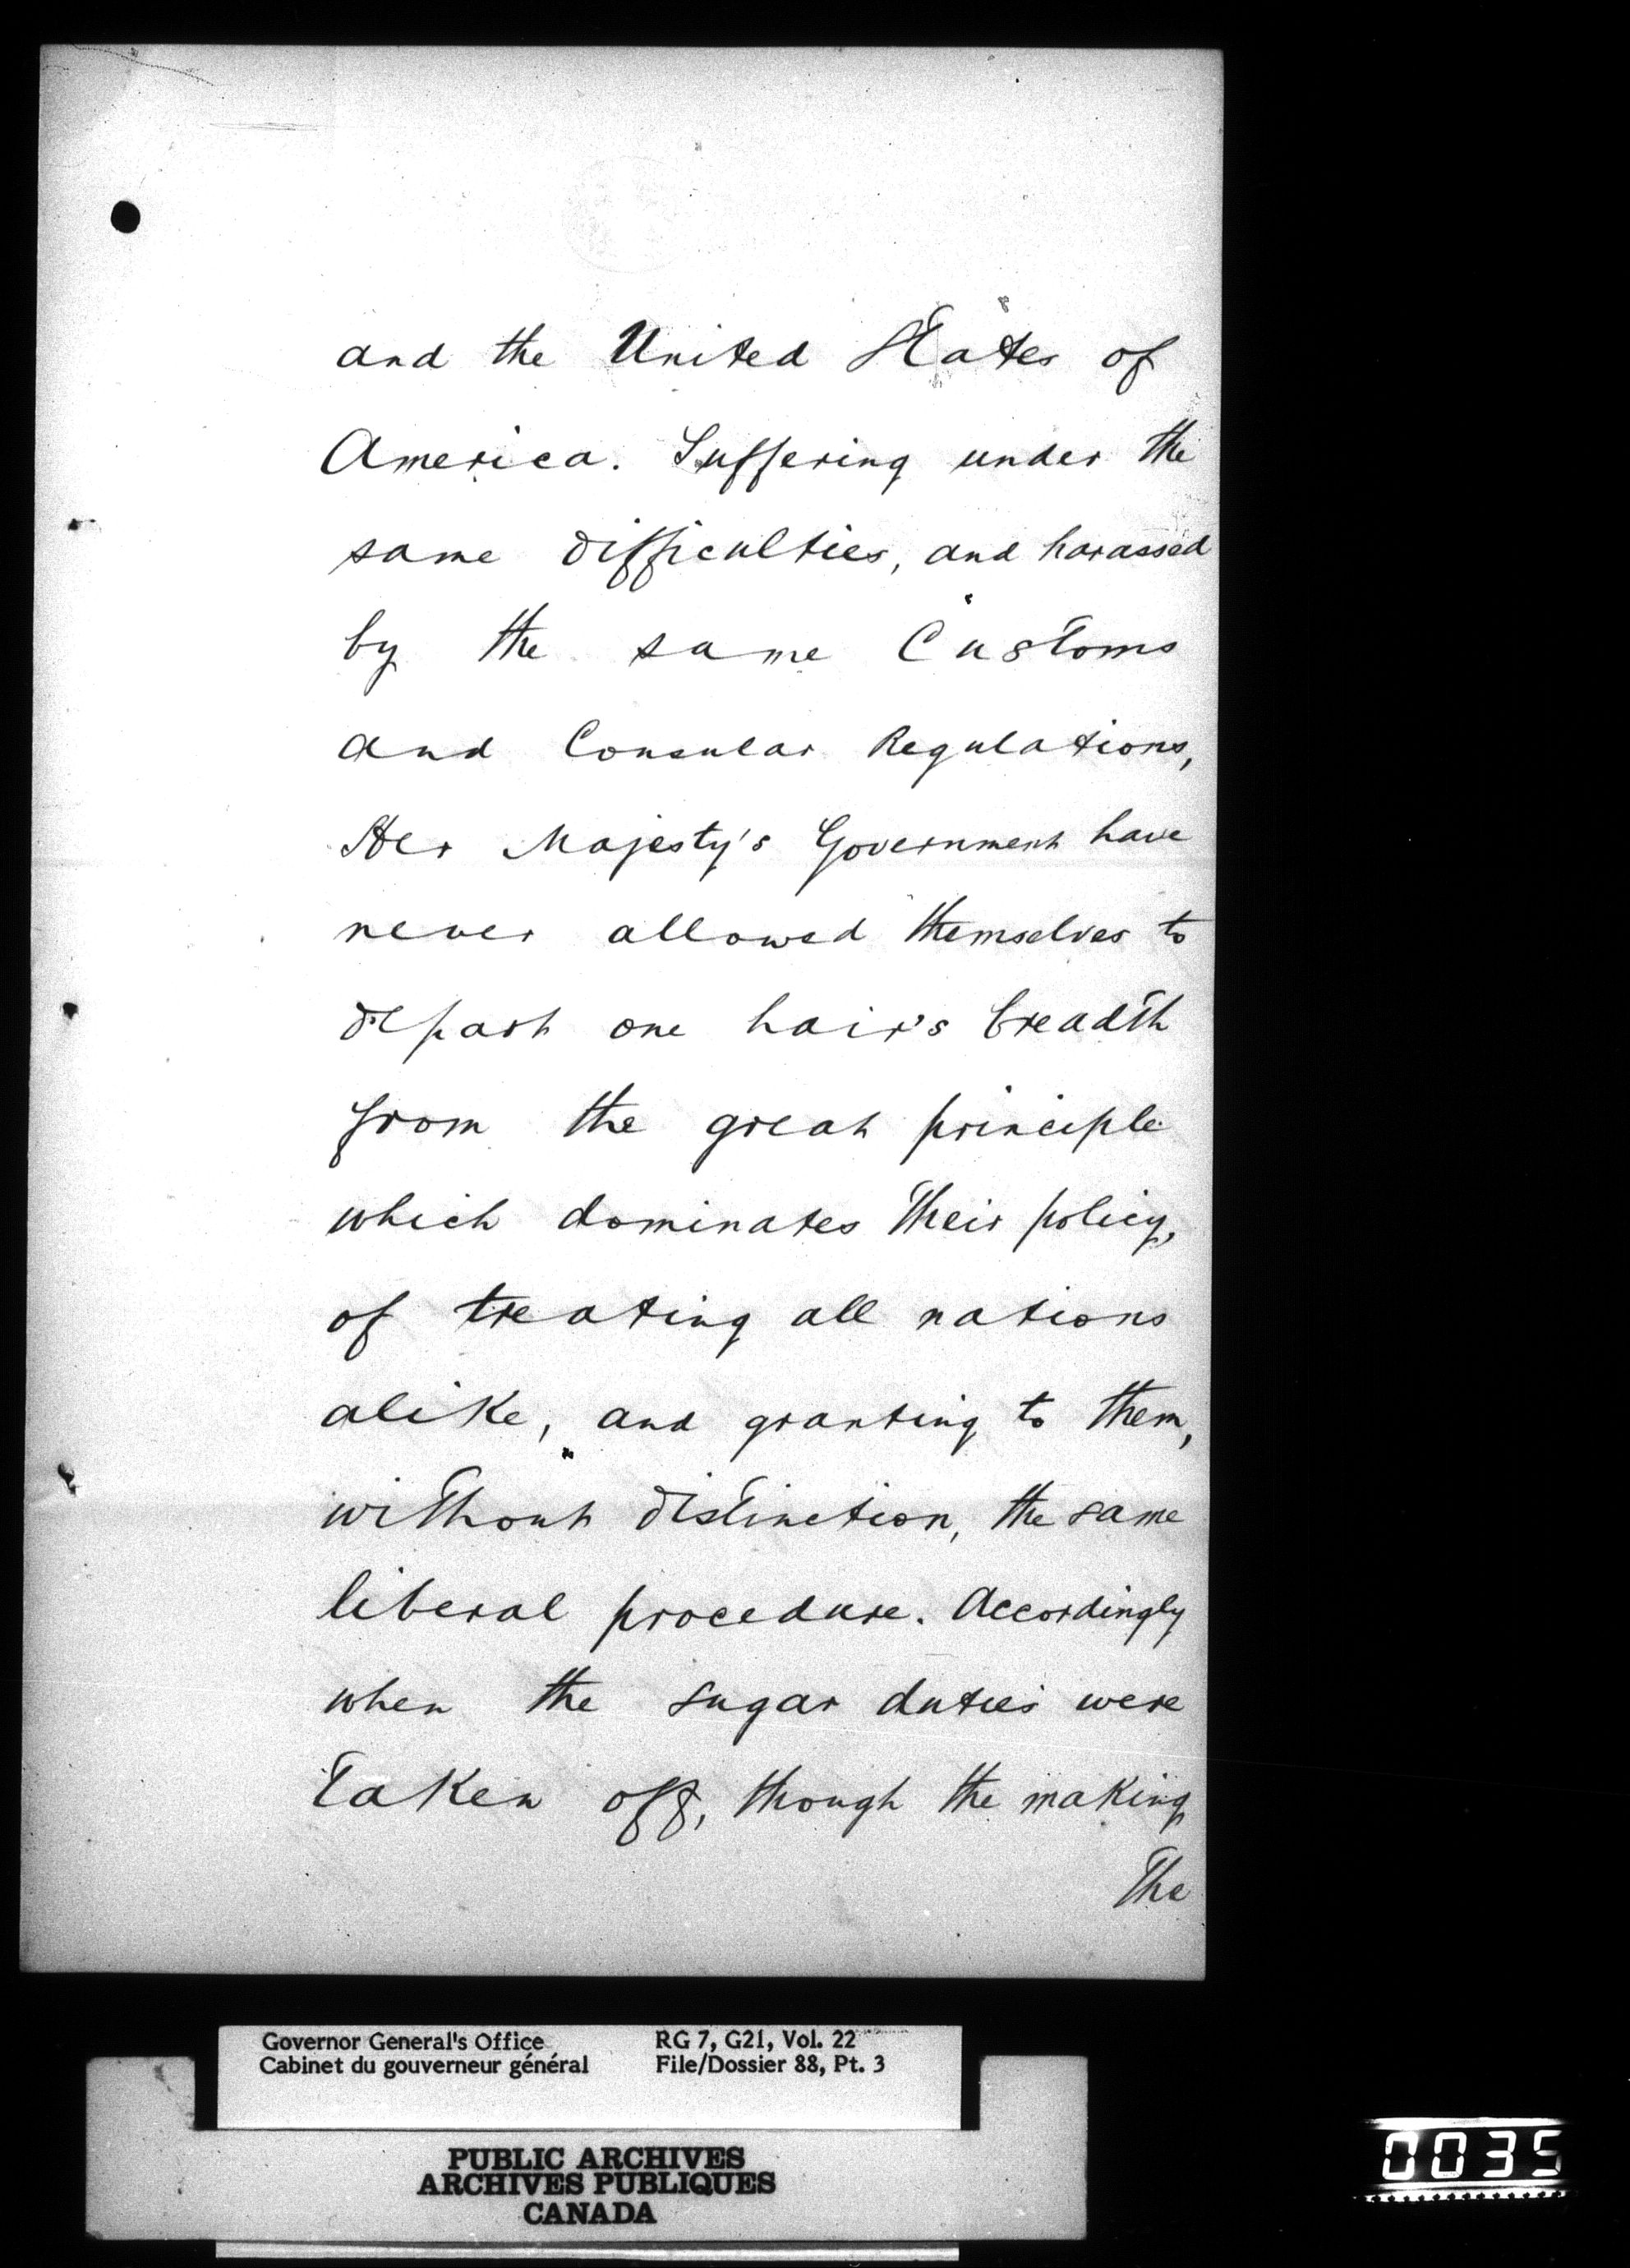 and the United States of
America. Suffering under the
same difficulties, and harassed
by the same Customs
and Consular Regulations,
Her Majesty's Government have
never allowed themselves to
depart one hair's breadth
from the great principle
which dominates their policy,
of treating all nations
alike, and granting to them,
without distinction, the same
liberal procedure. Accordingly
when the sugar duties were
taken off, though the making
The
Governor General's Office RG 7, G21, Vol. 22
Cabinet du gouverneur général File/Dossier 88, Pt. 3
PUBLIC ARCHIVES
ARCHIVES PUBLIQUES
CANADA
0035